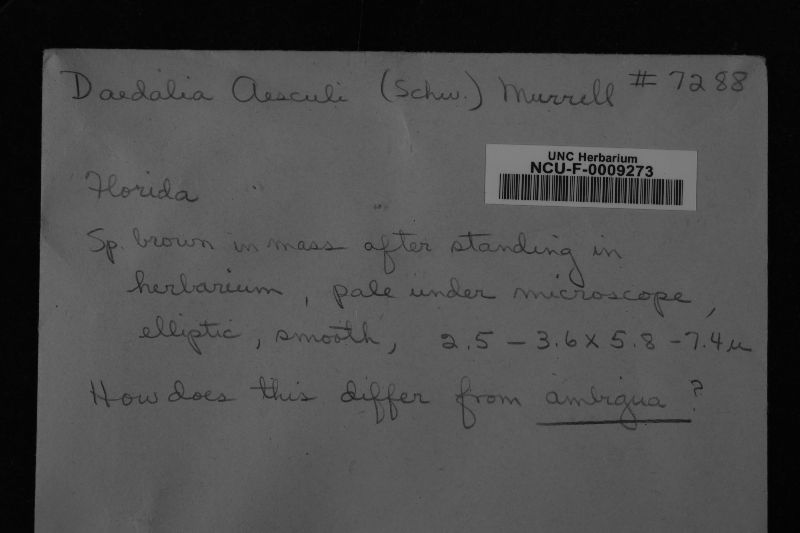 Daedalia Aesculi (Schw.) Murrell # 7288
UNC Herbarium
NCU-F-0009273
Florida
Sp. brown in mass after standing in
herbarium, pale under microscope,
elliptic, smooth, 2.5 – 3.6 x 5.8 – 7.4 µ
How does this differ from ambigua?